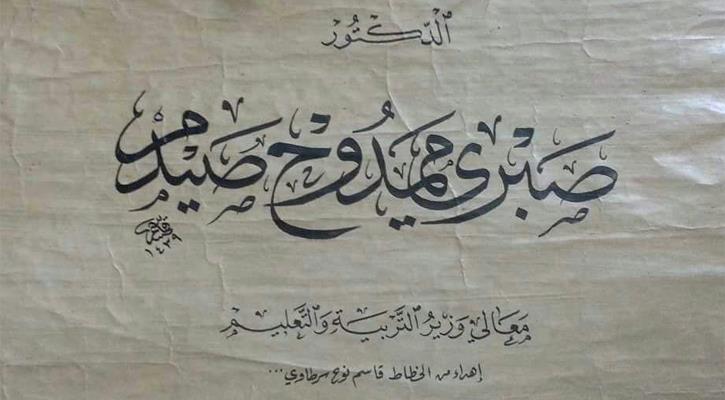 الدكتور
صبري ممدوح صيدم
١٤٣٩
معالي وزير التربية والتعليم
إهداء من الخطاط قاسم نوح سرطاوي...